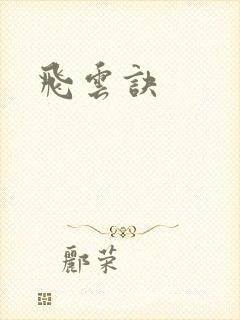 飛雲訣
酈荣